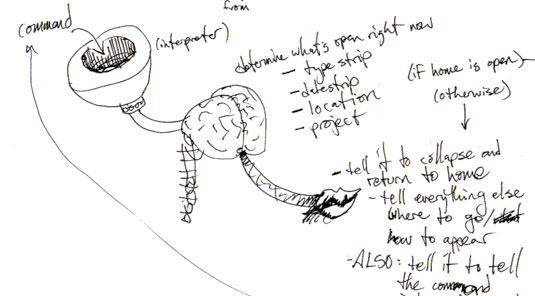 from
command
(interpreter)
determine what's open right now
- type strip
- datestrip
- location
- project
(if home is open)
(otherwise)
- tell it to collapse and
return to home
- tell everything else
where to go/
how to appear
- ALSO: tell it to tell
the command